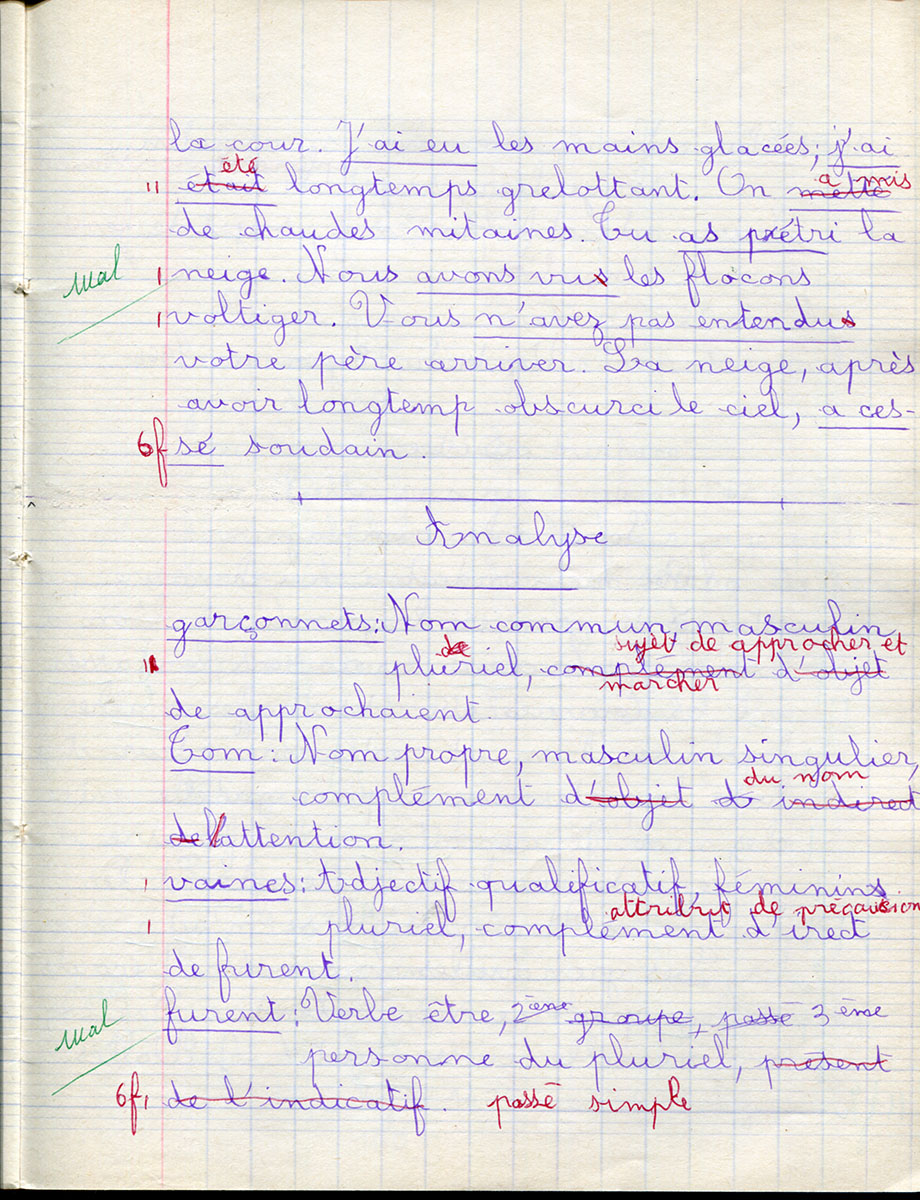 la cour. J'ai eu les mains glacées; j'ai
été
a mis
" était longtemps grelottant. On mette
de chaudes mitaines. Tu as pétri la
mal
neige. Nous avons vus les flocons
voltiger. Vous n'avez pas entendus
votre père arriver. La neige, après
avoir longtemp obscurci le ciel, a ces-
6f sé soudain.
Analyse
garçonnets: Nom commun masculin
sujet de approcher et
pluriel, complément d'objet
marcher
de approchaient.
Tom: Nom propre, masculin singulier,
du nom
complément d'objet indirect
de l'attention.
vaines: Adjectif qualificatif, féminins
attribut de précaution
pluriel, complément d'irect
de furent.
furent: Verbe être, 2ème groupe, passé 3ème
mal
personne du pluriel, présent
6f, de l'indicatif. passé simple